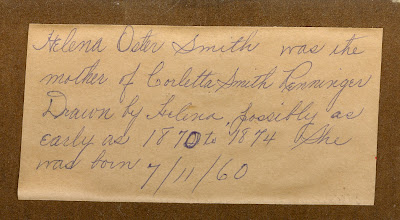 Helena Oster Smith was the
mother of Corletta Smith Renninger
Drawn by Helena, possibly as
early as 1870 to 1874 She
was born 7/11/60